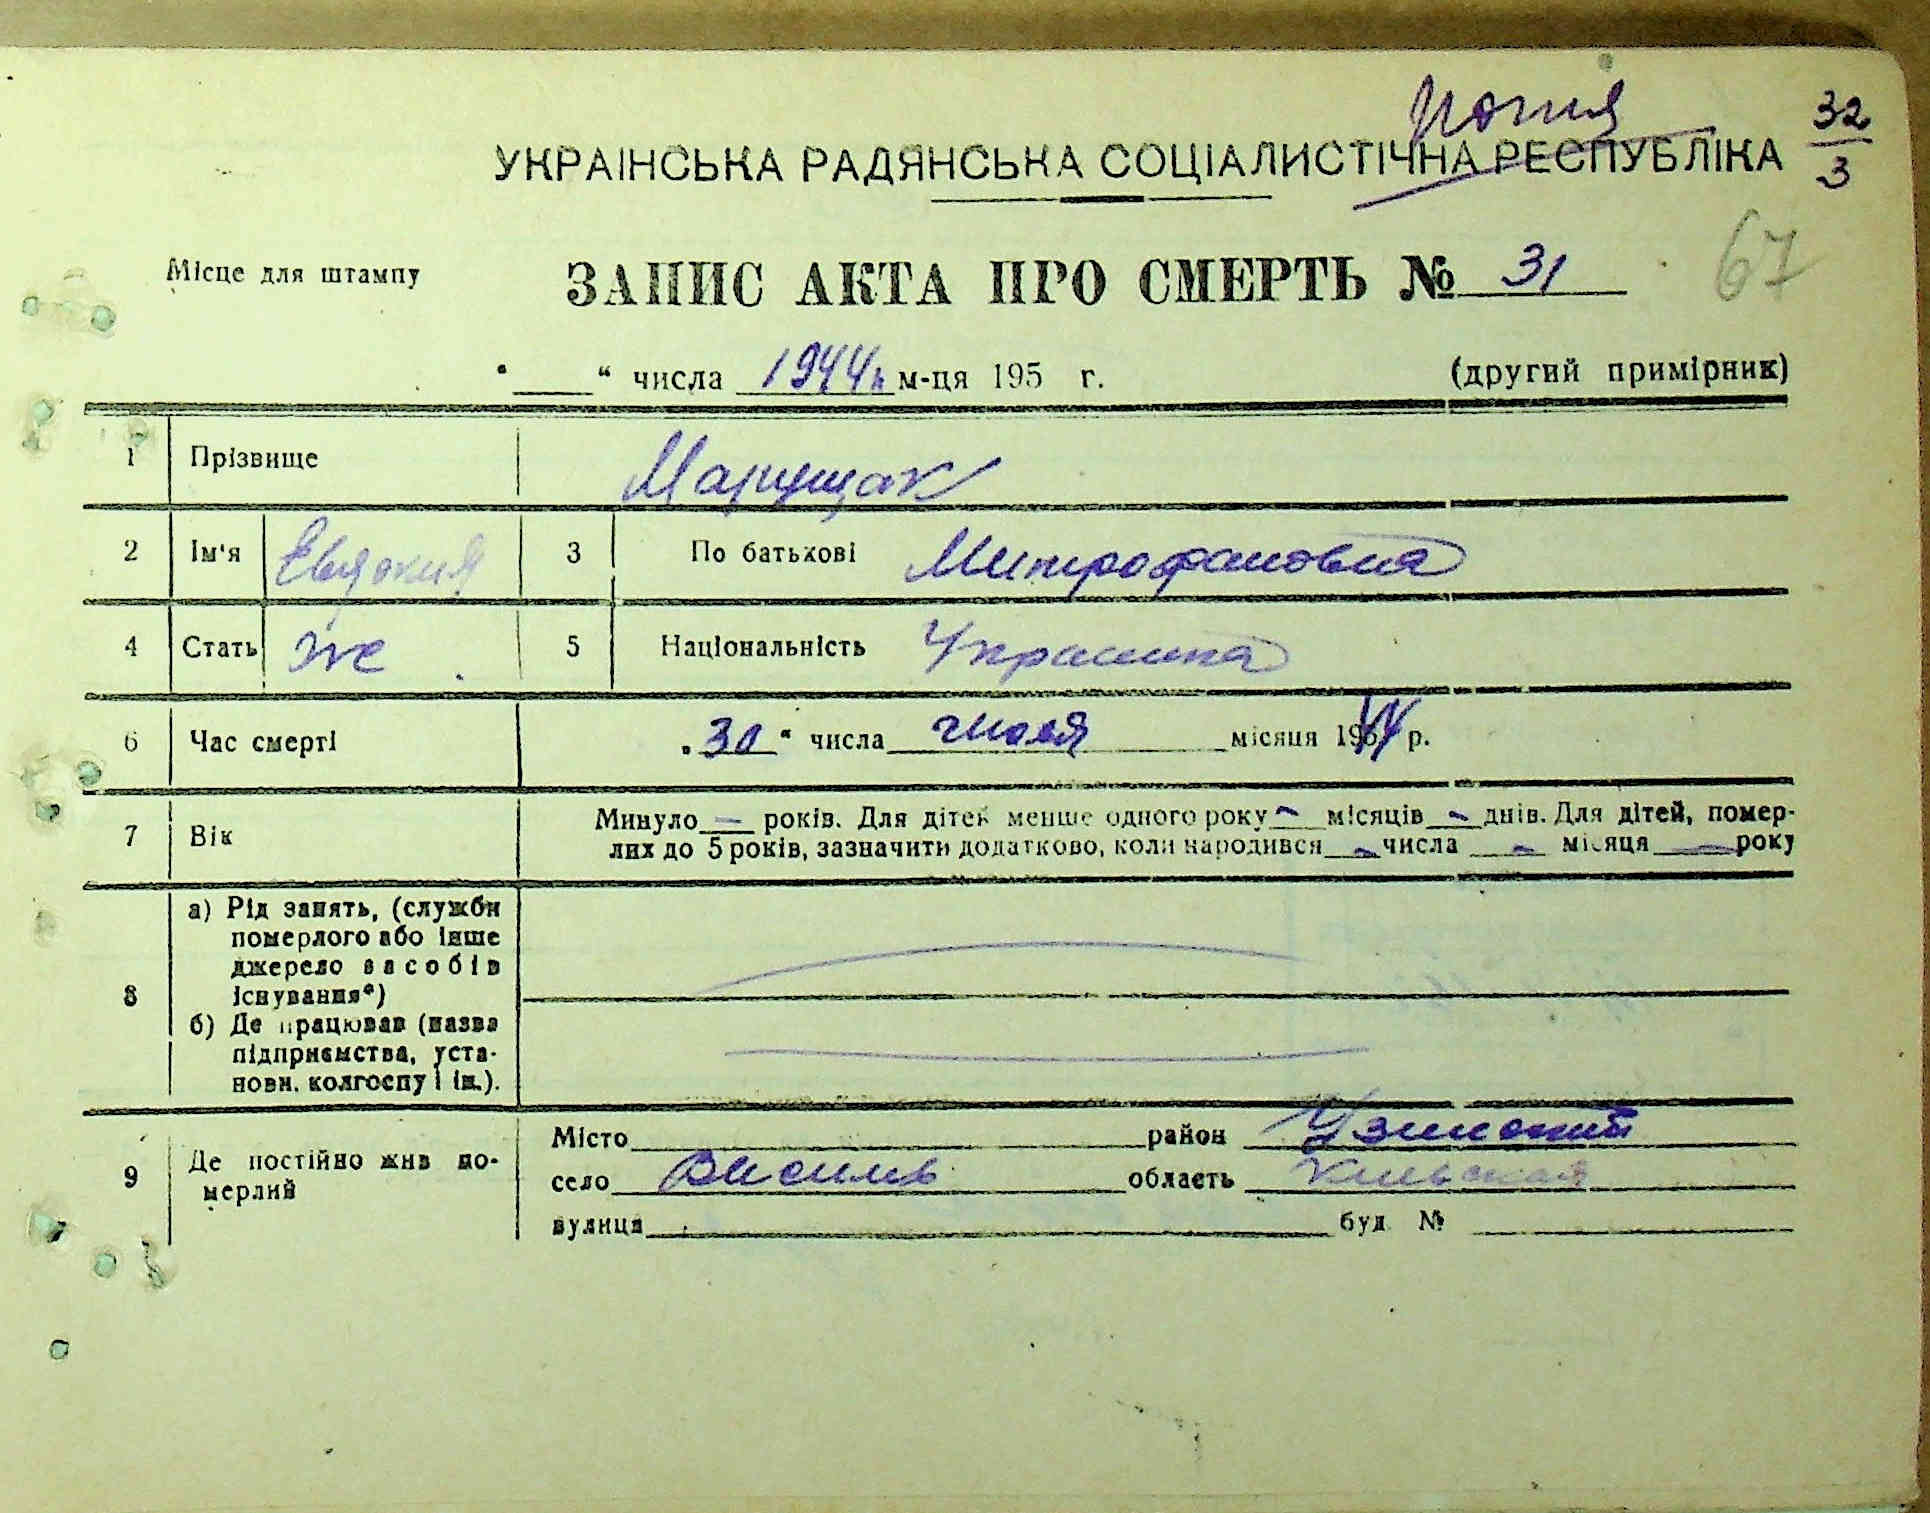 копия
32
3
УКРАІНСЬКА РАДЯНСЬКА СОЦІАЛИСТІЧНА РЕСПУБЛІКА
67
Місце для штампу
ЗАПИС АКТА ПРО СМЕРТЬ № 31
"___" числа 1944 м-ця 195 г. (другий примірник)
1 Прізвище Марущак
2 Ім'я Евдокия 3 По батькові Митрофановна
4 Стать же 5 Національність Украинка
6 Час смерті "30" числа июля місяця 1944 р.
7 Вік Минуло — років. Для дітей менше одного року — місяців — днів. Для дітей, помер-
лих до 5 років, зазначити додатково, коли народився — числа — місяця — року
8 а) Рід занять, (служби
померлого або інше
джерело засобів
існування*)
б) Де працював (назва
підприємства, уста-
нови, колгоспу і ін.).
9 Де постійно жив по-
мерлий
Місто район Узинский
село область Киевская
вулиця буд №